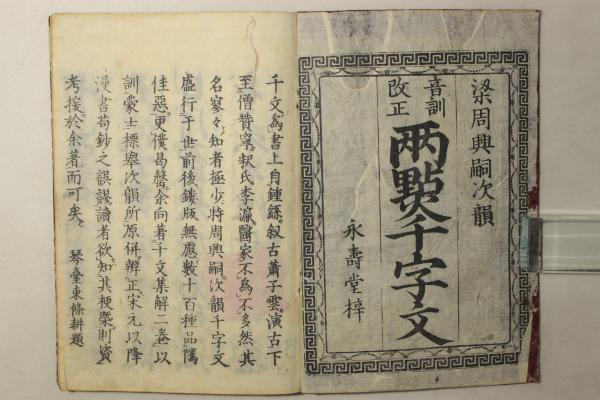 梁周興嗣次韻
音訓
改正
兩點千字文
永壽堂梓
千文為書上自鍾繇叙古蕭子雲演古下
至僧贊寧釈氏李瀛醫家不為不多然其
名寥々知者極少特周興嗣次韻千字文
盛行于世前後鏤版無慮數十百種品隲
佳惡更僕曷罄余向著千文集解二卷以
訓蒙士標舉次韻所原併辨正宋元以降
漫書苟鈔之誤謬讀者欲知其梗槩則資
考援於余著而可矣
琴臺東條耕題